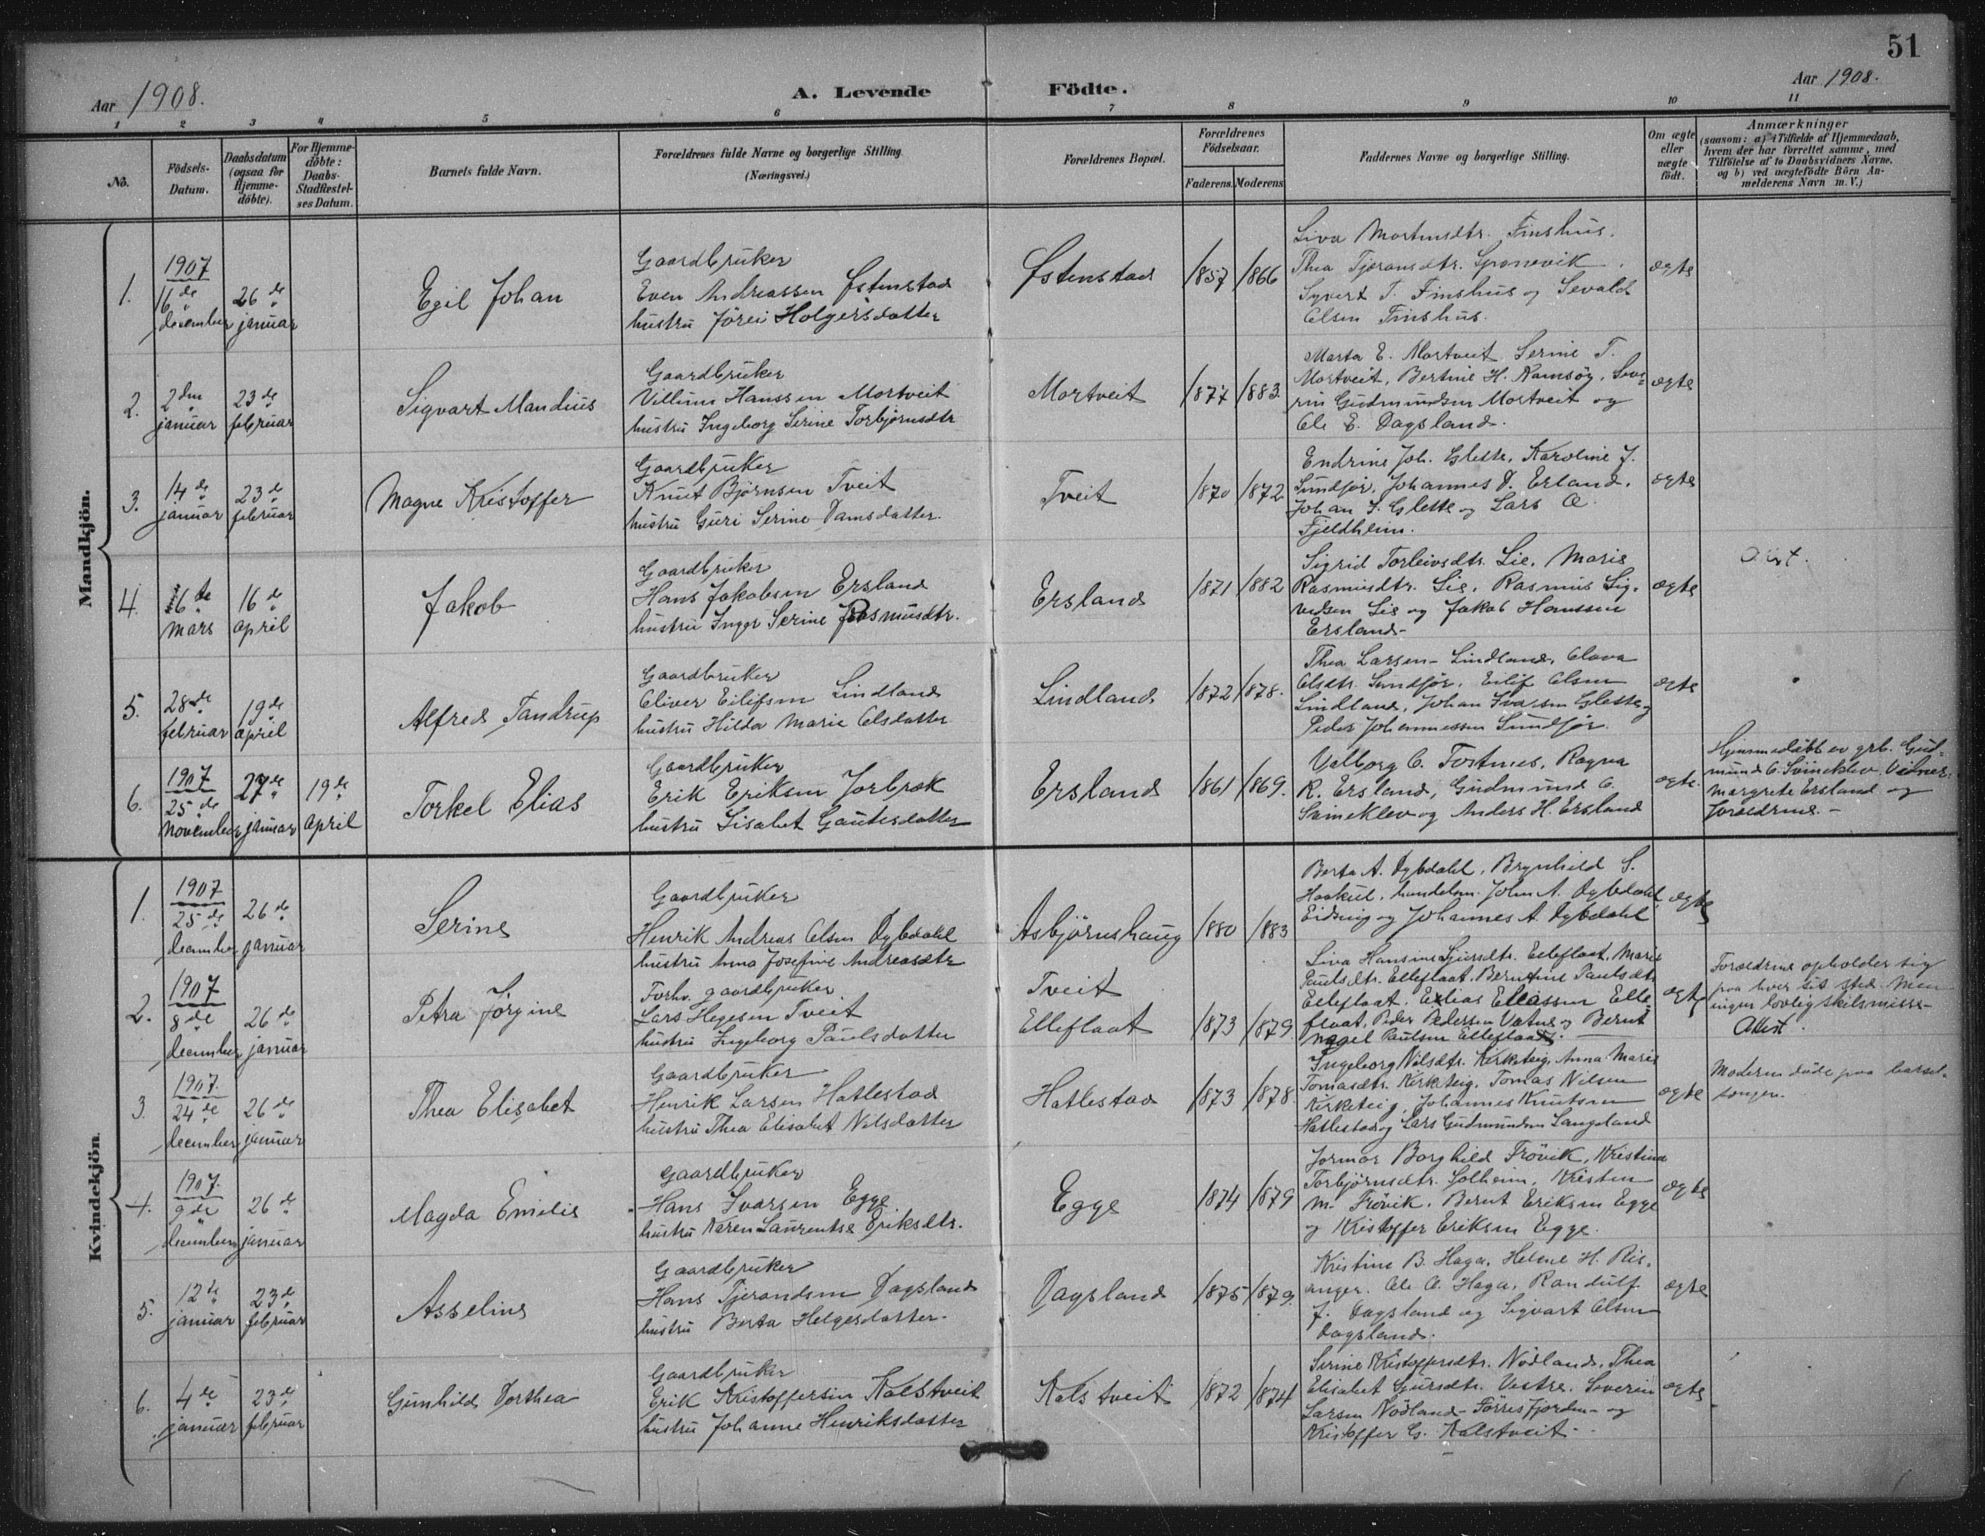 51
Aar 1908.
A. Levende Födte.
Aar 1908.
1 2 3 4 5 6 7 8 9 10 11
No.
Födsels-
Datum.
Daabsdatum
(ogsaa for
Hjemme-
döbte).
For Hjemme-
döbte:
Daabs-
Stadfæstel-
ses Datum.
Barnets fulde Navn.
Forældrenes fulde Navne og borgerlige Stilling
(Næringsvei.)
Forældrenes Bopæl.
Forældrenes
Födselsaar.
Faderens. Moderens
Faddernes Navne og borgerlige Stilling.
Om ægte
eller
uægte
födt.
Anmærkninger
(saasom: a) i Tilfælde af Hjemmedaab,
hvem der har forrettet samme, med
Tilföielse af to Daabsvidners Navne,
og b) ved uægtefödte Börn An-
melderens Navn m. V.)
Mandkjön.
1.
1907
16de
december
26de
januar
Egil Johan
Gaardbruker
Even Andreassen Østenstad
hustru Jørei Holgersdatter
Østenstad
1857 1866
Liva Mortensdtr. Finshus.
Thea Tjøransdtr. Sponevik.
Syvert T. Finshus og Sevald
Olsen Finshus.
ægte
2.
2den
januar
23de
februar
Sigvart Mandius
Gaardbruker
Villum Hanssen Mortveit
hustru Ingeborg Serine Torbjørnsdtr
Mortveit
1877 1883
Marta E. Mortveit, Serine T.
Mortveit, Bertine H. Ramsøg, Seve-
rin Gudmundsen Mortveit og
Ole E. Dagsland.
ægte
3.
14de
januar
23de
februar
Magne Kristoffer
Gaardbruker
Knut Bjørnsen Tveit
hustru Guri Serine Damsdatter.
Tveit
1870 1872
Endrine Joh. Slette, Karoline J.
Sundfør, Johannes D. Erland,
Johan I. Slette og Lars O.
Fjeldheim.
ægte
4.
16de
mars
16de
april
Jakob
Gaardbruker
Hans Jakobsen Ersland
hustru Inger Serine Rasmusdtr.
Ersland
1871 1882
Sigrid Torleivsdtr. Lie, Marie
Rasmusdtr. Lie, Rasmus Sig-
vedsen Lie og Jakob Hanssen
Ersland-
ægte
Attest.
5.
28de
februar
19de
april
Alfred Tandrup
Gaardbruker
Oliver Eilifsen Lindland
hustru Hilda Marie Olsdatter
Lindland
1872 1878.
Thea Larsen- Lindland, Olava
Olsdtr. Sundfør, Eilif Olsen
Lindland, Johan Ivarsen Slette og
Peder Johannessen Sundfør.
ægte
6.
1907
25de
november
27de
januar
19de
april
Torkel Elias
Gaardbruker
Erik Eriksen Jorbræk
hustru Lisabet Gautesdatter
Ersland
1861 1869.
Valborg O. Fostnes, Ragna
R. Ersland, Gudmund O.
Svineklev og Anders H. Ersland
ægte.
Hjemmedøbt av grb. Gud-
mund O. Svineklev. Vidner:
Margrete Ersland og
forældrene.-
Kvindekjön.
1.
1907
25de
december
26de
januar
Serine
Gaardbruker
Henrik Andreas Olsen Dybdahl
hustru Anna Josefine Andreasdtr
Asbjørnshaug
1880 1883
Berta A. Dybdahl, Brynhild S.
Haakul, handelsm. John A. Dybdahl
Eidsvig og Johannes A. Dybdahl
ægte
2.
1907
8de
december
26de
januar
Petra Jørgine
Forhv. gaardbruker
Lars Hegesen Tveit
hustru Ingeborg Paulsdatter
Tveit
Elleflaat
1873 1879
Liva Hansine Sjursdtr. Elleflaat, Marie
Paulsdtr. Elleflaat, Berntine Paulsdtr
Elleflaat, Elias Eliassen Elle-
flaat, Peder Pedersen Vatne og Bernt
Nagel Paulsen Elleflaat.
ægte
Forældrene opholder sig
paa hver sit sted. Men
ingen lovlig skilsmisse-
Attest.
3.
1907.
24de
december
26de
januar
Thea Elisabet
Gaardbruker
Henrik Larsen Hatlestad
hustru Thea Elisabet Nilsdatter
Hatlestad
1873 1878.
Ingeborg Nilsdtr. Kirketeig, Anna Marie
Tomasdtr. Kirketeig, Tomas Nilsen
Kirketeig, Johannes Knutsen
Hatlestad og Lars Gudmundsen Langeland
ægte
Moderen døde paa barsel-
sengen.
4.
1907.
9de
december
26de
januar
Magda Emilie
Gaardbruker
Hans Ivarsen Egge
hustru Karen Laurentse Eriksdtr.
Egge
1874 1879
Jormor Borghild Frövik, Kristine
Torbjørnsdtr. Solheim, Kristen
M. Frövik, Bernt Eriksen Egge
og Kristoffer Eriksen Egge.
ægte
5.
12te
januar
23de
februar
Asseline
Gaardbruker
Hans Tjerandsen Dagsland
hustru Berta Helgesdatter.
Dagsland
1875 1879.
Kristine B. Haga, Helene H. Ris-
anger, Ole O. Haga, Randulf
J. Dagsland og Sigvart Olsen
Dagsland.
ægte
6.
4de
januar
23de
februar
Gunhild Dorthea
Gaardbruker
Erik Kristoffersen Kalstveit
hustru Johanne Henriksdatter
Kalstveit
1872 1874
Serine Kristoffersdtr. Nødland, Thea
Elisabet Sjursdtr. Vestre, Severin
Larsen Nødland- Førresfjorden- og
Kristoffer G. Kalstveit.
ægte